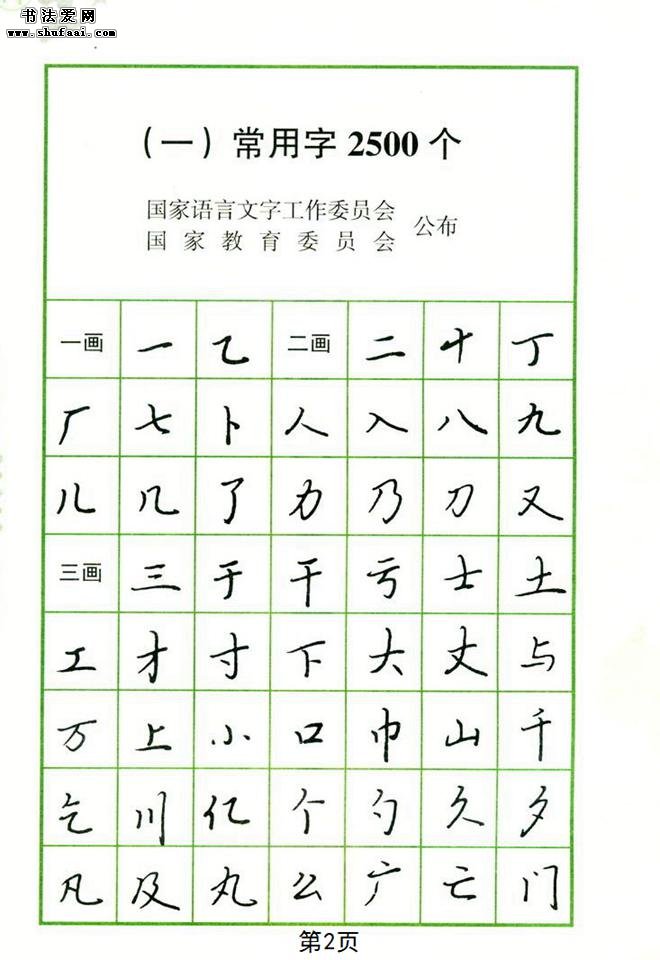 书法爱网
www.shufaai.com
（一）常用字 2500 个
国家语言文字工作委员会
国家教育委员会
公布
一画 一 乙 二画 二 十 丁
厂 七 卜 人 入 八 九
儿 几 了 力 乃 刀 又
三画 三 于 干 亏 士 土
工 才 寸 下 大 丈 与
万 上 小 口 巾 山 千
乞 川 亿 个 勺 久 夕
凡 及 丸 么 广 亡 门
第2页